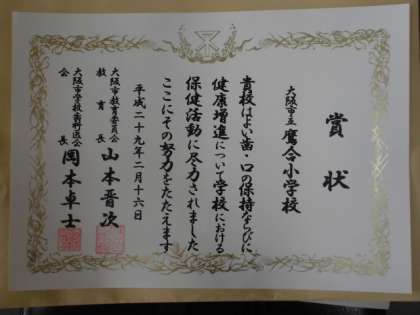 賞状
大阪市立 鷹合小学校
貴校はよい歯・口の保持ならびに
健康増進について学校における
保健活動に尽力されました
ここにその努力をたたえます
平成二十九年二月十六日
大阪市教育委員会
教育長 山本晋次
大阪市学校歯科医会
会長 岡本卓士